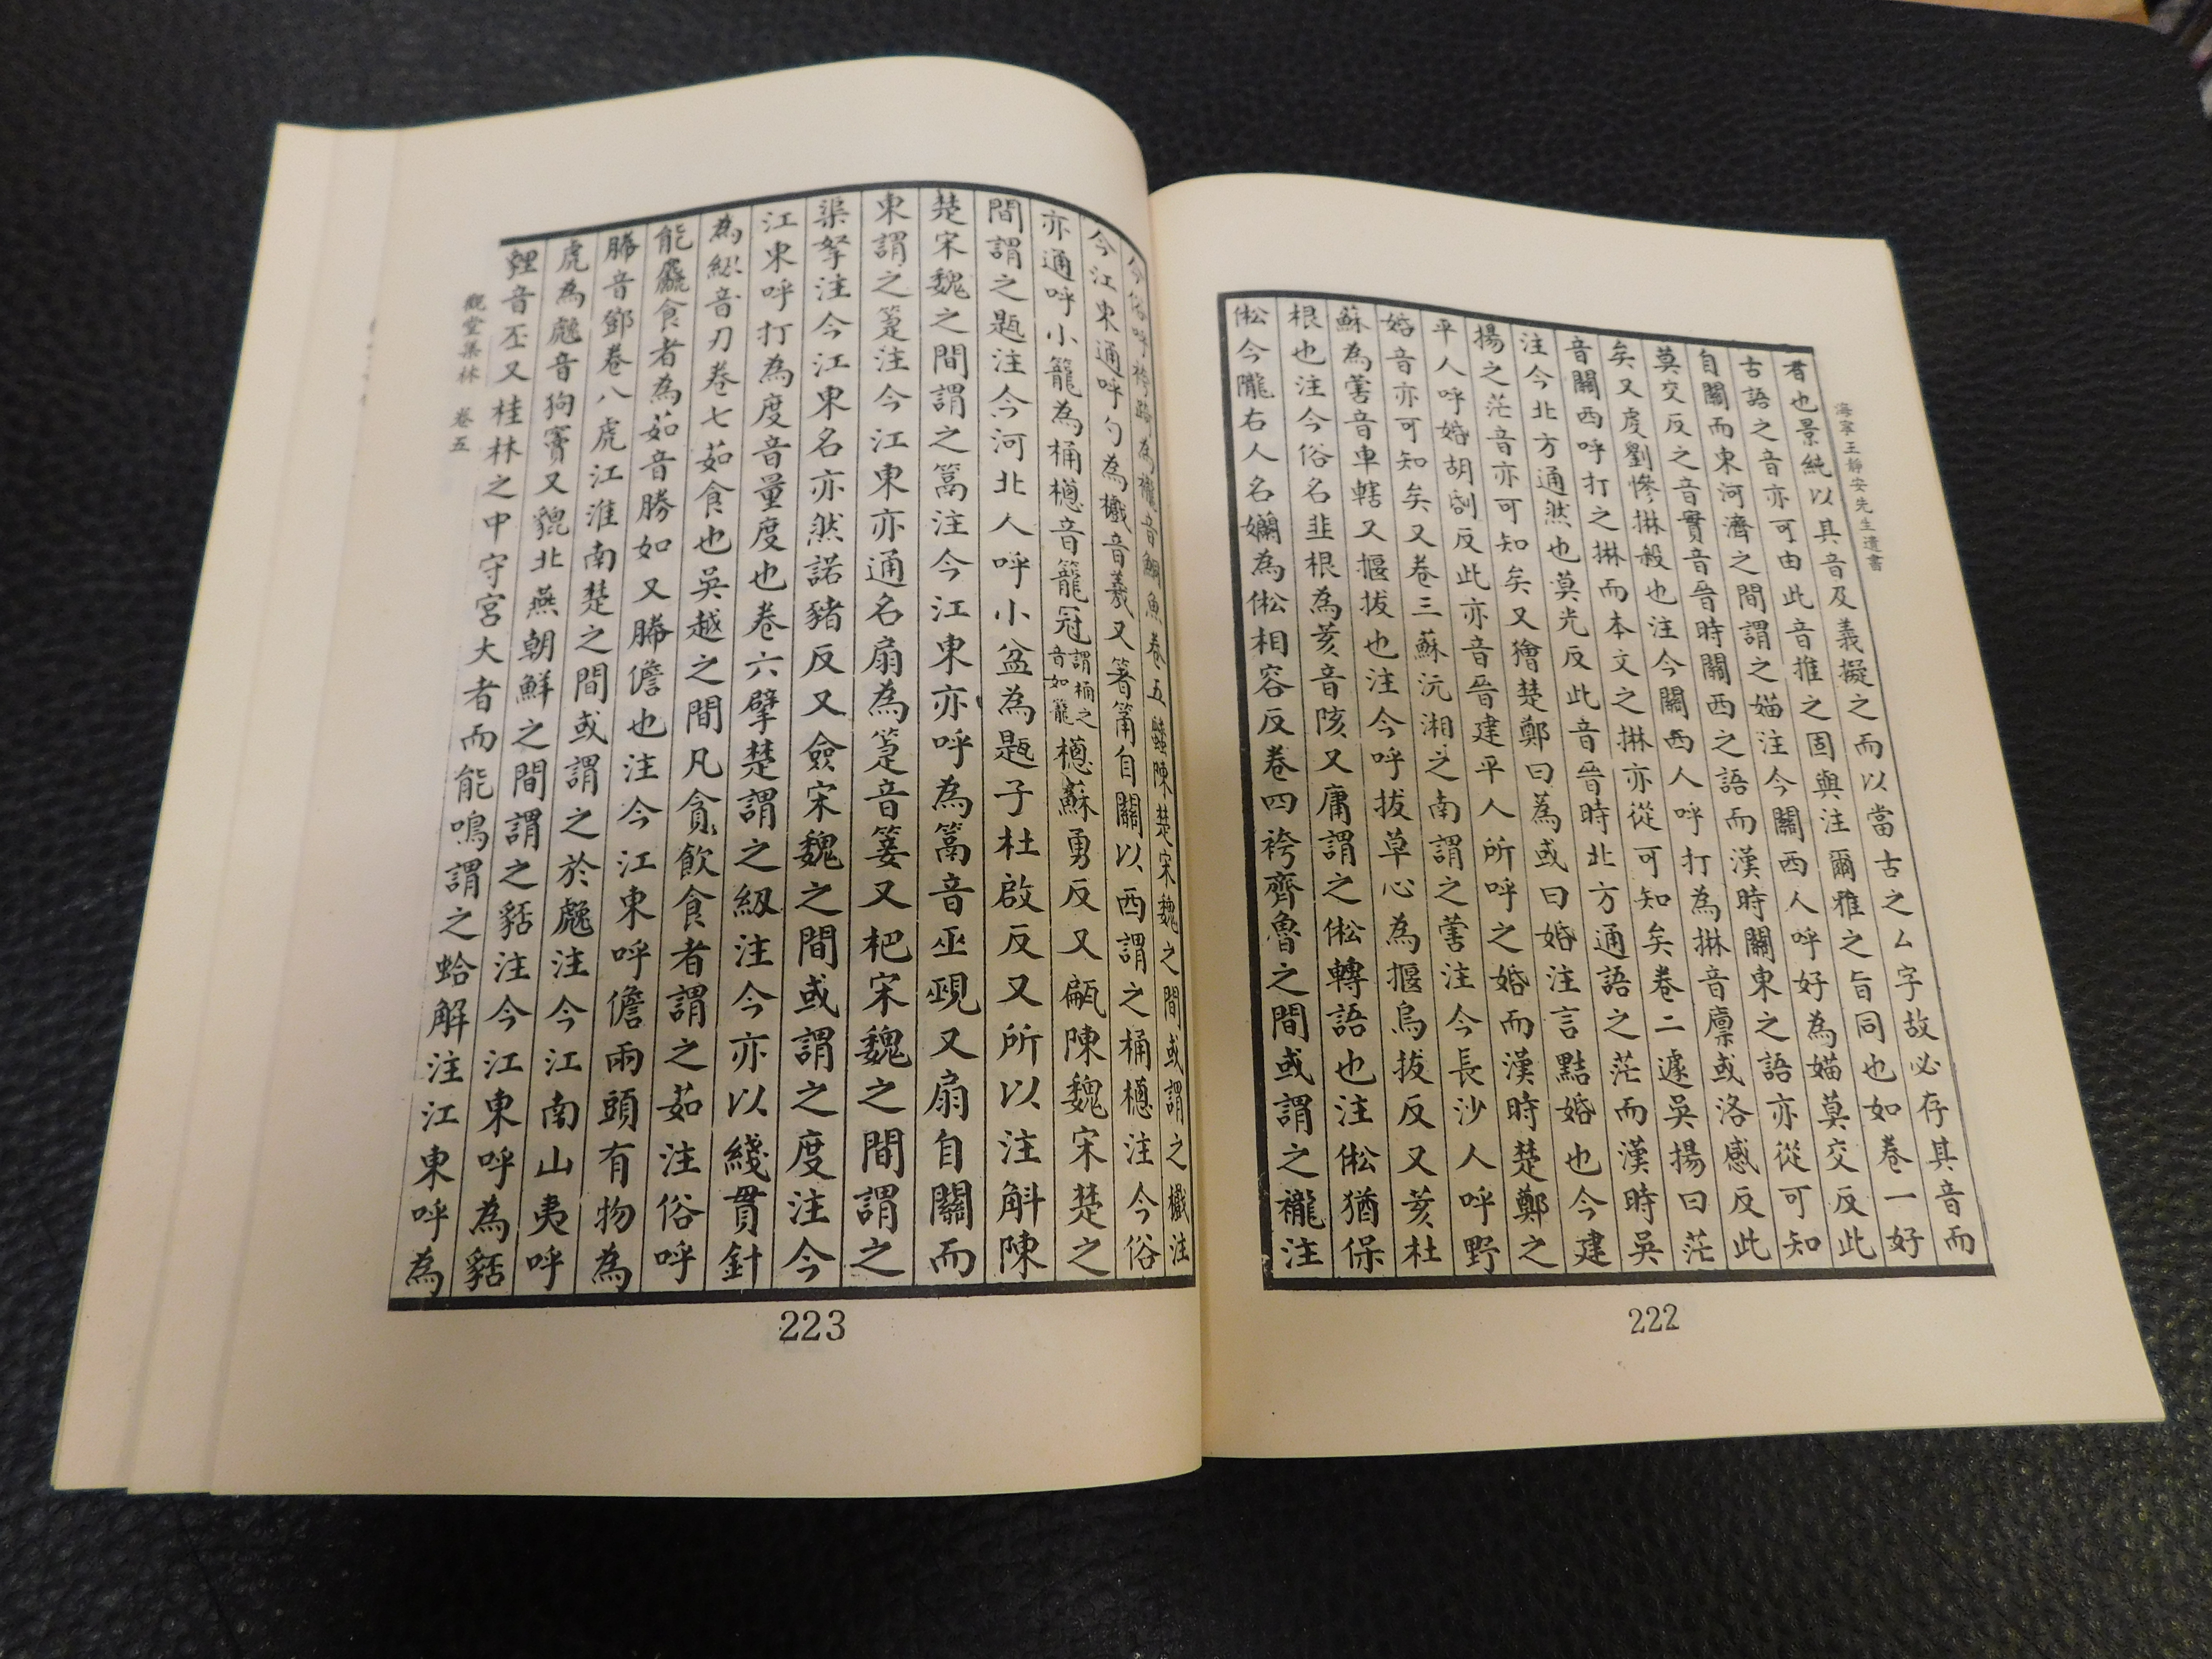 海寧王靜安先生遺書
者也景純以其音及義擬之而以當古之厶字故必存其音而
古語之音亦可由此音推之固與注爾雅之旨同也如卷一好
自關而東河濟之間謂之媌注今關西人呼好為媌莫交反此
莫交反之音實音晉時關西之語而漢時關東之語亦從可知
矣又虔劉慘惏殺也注今關西人呼打為惏音廩或洛感反此
音關西呼打之惏而本文之惏亦從可知矣卷二遽吳揚曰茫
注今北方通然也莫光反此音晉時北方通語之茫而漢時吳
揚之茫音亦可知矣又獪楚鄭曰為或曰姡注言黠姡也今建
平人呼姡胡刮反此亦音晉建平人所呼之姡而漢時楚鄭之
姡音亦可知矣又卷三蘇沅湘之南謂之䓤注今長沙人呼野
蘇為䓤音車轄又揠拔也注今呼拔草心為揠烏拔反又荄杜
根也注今俗名韭根為荄音陔又庸謂之倯轉語也注倯猶保
倯今隴右人名孏為倯相容反卷四袴齊魯之間或謂之襱注
222
今俗呼袴踦為襱音鮦魚卷五蠡陳楚宋魏之間或謂之㰕注
今江東通呼勺為㰕音羲又箸筩自關以西謂之桶檧注今俗
亦通呼小籠為桶檧音籠冠謂桶之音如籠檧蘇勇反又甂陳魏宋楚之
間謂之㼵注今河北人呼小盆為㼵子杜啟反又所以注斛陳
楚宋魏之間謂之篙注今江東亦呼為篙音巫覡又扇自關而
東謂之箑注今江東亦通名扇為箑音篓又杷宋魏之間謂之
渠挐注今江東名亦然諾豬反又僉宋魏之間或謂之度注今
江東呼打為度音量度也卷六擘楚謂之紉注今亦以綫貫針
為紉音刃卷七茹食也吳越之間凡貪飲食者謂之茹注俗呼
能麤食者為茹音勝如又膡儋也注今江東呼儋兩頭有物為
膡音鄧卷八虎江淮南楚之間或謂之於䖘注今江南山夷呼
虎為䖘音狗竇又貔北燕朝鮮之間謂之䝙注今江東呼為䝙
貍音丕又桂林之中守宮大者而能鳴謂之蛤解注江東呼為
觀堂集林 卷五
223